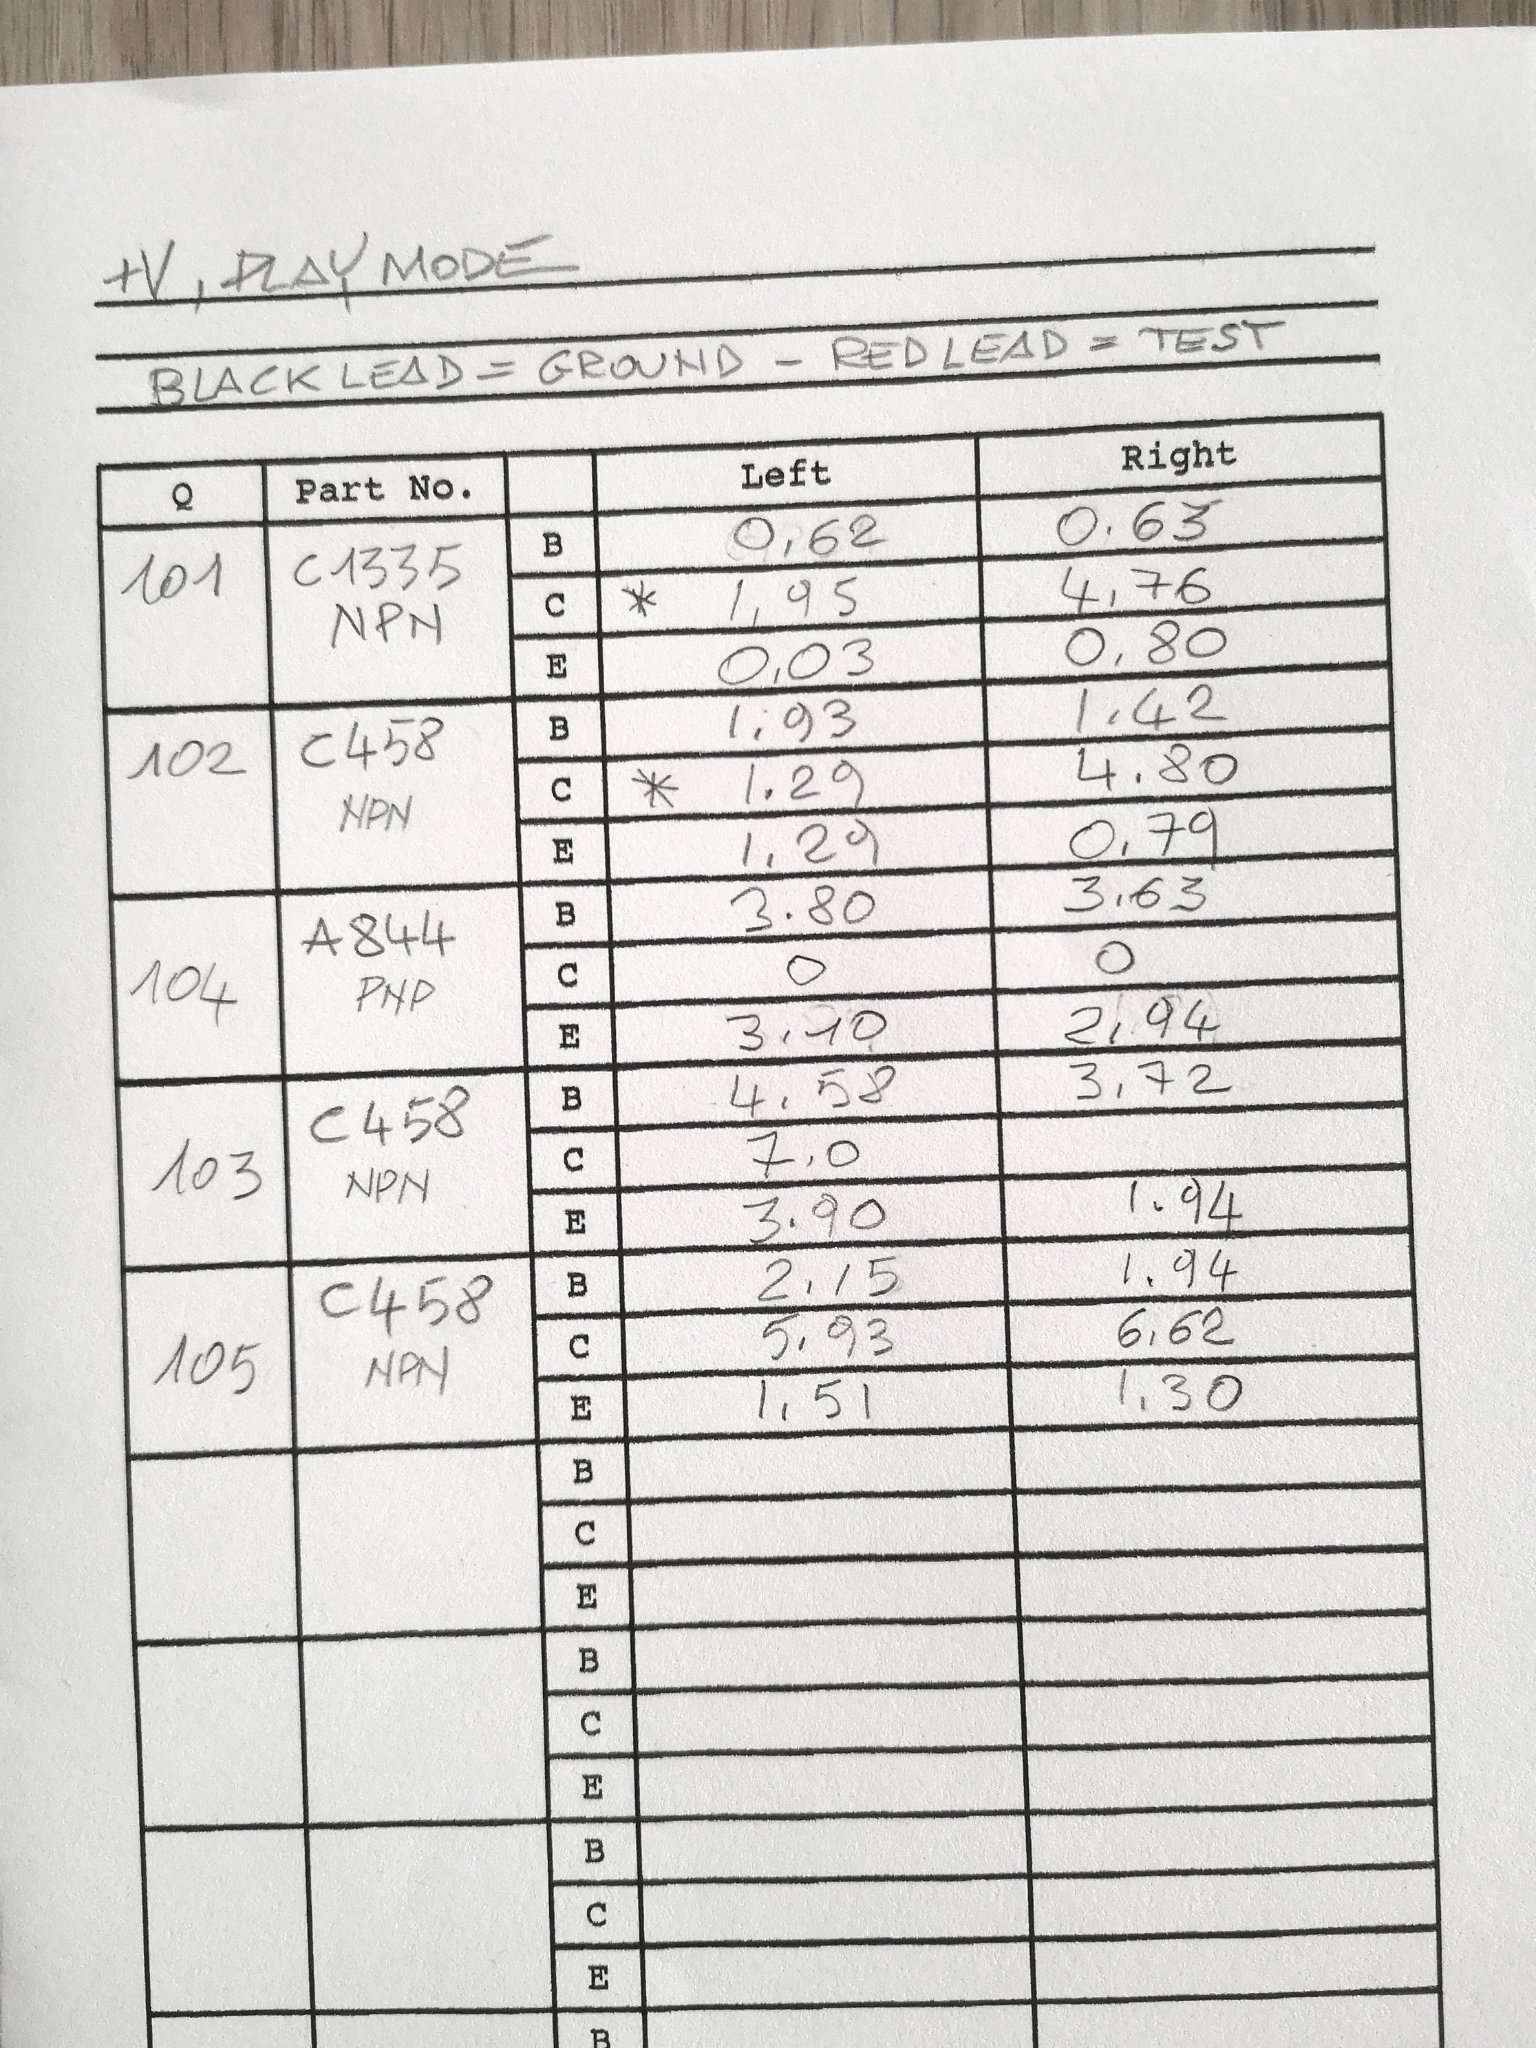 +V, PLAY MODE
BLACK LEAD = GROUND - RED LEAD = TEST
Q Part No. Left Right
101 C1335 NPN B 0,62 0.63
C * 1,95 4,76
E 0,03 0,80
102 C458 NPN B 1,93 1.42
C * 1.29 4.80
E 1,29 0,79
104 A844 PNP B 3.80 3,63
C 0 0
E 3.10 2,94
103 C458 NPN B 4,58 3,72
C 7,0
E 3.90 1.94
105 C458 NPN B 2,15 1.94
C 5.93 6,62
E 1,51 1,30
B
C
E
B
C
E
B
C
E
B